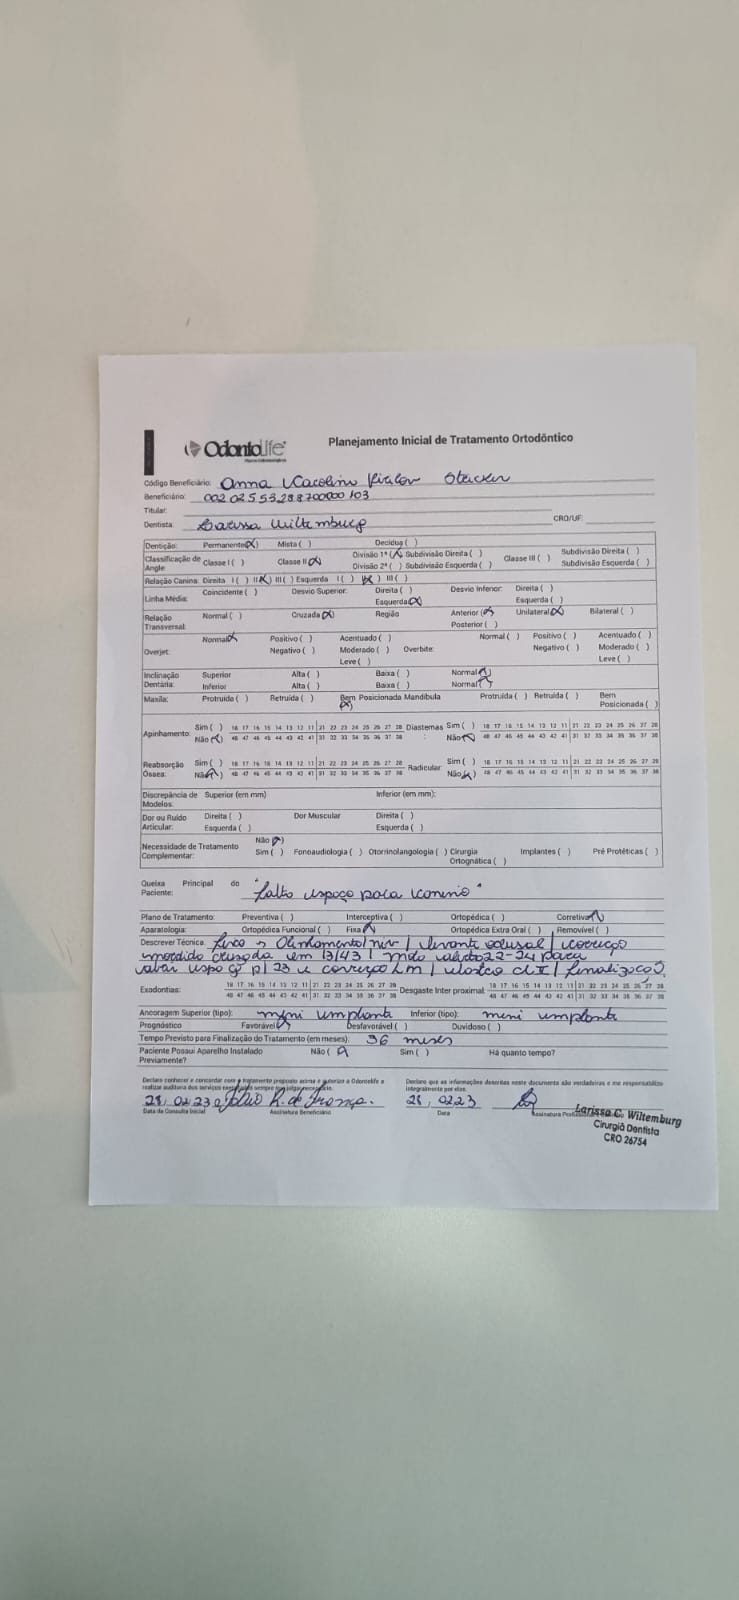 OdontoLife
Planejamento Inicial de Tratamento Ortodôntico
Código Beneficiário: Anna Karolin
Beneficiário: 002 025 53288700000 103
Titular:
Dentista: Larissa Wiltemburg CRO/UF:
Dentição: Permanente(X) Mista ( ) Decídua ( )
Classificação de Angle Classe I ( ) Classe II (X) Divisão 1ª (X) Subdivisão Direita ( ) Divisão 2ª ( ) Subdivisão Esquerda ( ) Classe III ( ) Subdivisão Direita ( ) Subdivisão Esquerda ( )
Relação Canina: Direita I ( ) II (X) III ( ) Esquerda I ( ) II (X) III ( )
Linha Média: Coincidente ( ) Desvio Superior: Direita ( ) Esquerda (X) Desvio Inferior: Direita ( ) Esquerda ( )
Relação Transversal: Normal ( ) Cruzada (X) Região Anterior (X) Posterior ( ) Unilateral (X) Bilateral ( )
Overjet: Normal (X) Positivo ( ) Negativo ( ) Acentuado ( ) Moderado ( ) Leve ( ) Overbite: Normal ( ) Positivo ( ) Negativo ( ) Acentuado ( ) Moderado ( ) Leve ( )
Inclinação Dentária: Superior Alta ( ) Baixa ( ) Normal (X)
Inferior Alta ( ) Baixa ( ) Normal (X)
Maxila: Protruída ( ) Retruída ( ) Bem Posicionada (X) Mandíbula Protruída ( ) Retruída ( ) Bem Posicionada ( )
Apinhamento: Sim ( ) 18 17 16 15 14 13 12 11 21 22 23 24 25 26 27 28 Diastemas : Sim ( ) 18 17 16 15 14 13 12 11 21 22 23 24 25 26 27 28
Não (X) 48 47 46 45 44 43 42 41 31 32 33 34 35 36 37 38 Não (X) 48 47 46 45 44 43 42 41 31 32 33 34 35 36 37 38
Reabsorção Óssea: Sim ( ) 18 17 16 15 14 13 12 11 21 22 23 24 25 26 27 28 Radicular: Sim ( ) 18 17 16 15 14 13 12 11 21 22 23 24 25 26 27 28
Não (X) 48 47 46 45 44 43 42 41 31 32 33 34 35 36 37 38 Não (X) 48 47 46 45 44 43 42 41 31 32 33 34 35 36 37 38
Discrepância de Modelos: Superior (em mm) Inferior (em mm):
Dor ou Ruído Articular: Direita ( ) Esquerda ( ) Dor Muscular Direita ( ) Esquerda ( )
Necessidade de Tratamento Complementar: Não (X) Sim ( ) Fonoaudiologia ( ) Otorrinolangologia ( ) Cirurgia Ortognática ( ) Implantes ( ) Pré Protéticas ( )
Queixa Principal do Paciente: "falta espaço para canino"
Plano de Tratamento: Preventiva ( ) Interceptiva ( ) Ortopédica ( ) Corretiva (X)
Aparatologia: Ortopédica Funcional ( ) Fixa (X) Ortopédica Extra Oral ( ) Removível ( )
Descrever Técnica: fixo → Alinhamento/niv / levante oclusal / correção
mordida cruzada em 13/43 / mola aberta 22-24 para
abrir espaço p/ 23 e correção Lm / elástico cl II / finalização
Exodontias: 18 17 16 15 14 13 12 11 21 22 23 24 25 26 27 28 Desgaste Inter proximal: 18 17 16 15 14 13 12 11 21 22 23 24 25 26 27 28
48 47 46 45 44 43 42 41 31 32 33 34 35 36 37 38 48 47 46 45 44 43 42 41 31 32 33 34 35 36 37 38
Ancoragem Superior (tipo): mini implante Inferior (tipo): mini implante
Prognóstico Favorável (X) Desfavorável ( ) Duvidoso ( )
Tempo Previsto para Finalização do Tratamento (em meses): 36 meses
Paciente Possui Aparelho Instalado Previamente? Não (X) Sim ( ) Há quanto tempo?
Declaro conhecer e concordar com o tratamento proposto acima e autorizar a Odontolife a
Declaro que as informações descritas neste documento são verdadeiras e me responsabilizo integralmente por elas.
28, 02 23
Data da Consulta Inicial Assinatura Beneficiário
28, 0223
Data
Larissa C. Wiltemburg
Cirurgiã Dentista
CRO 26754